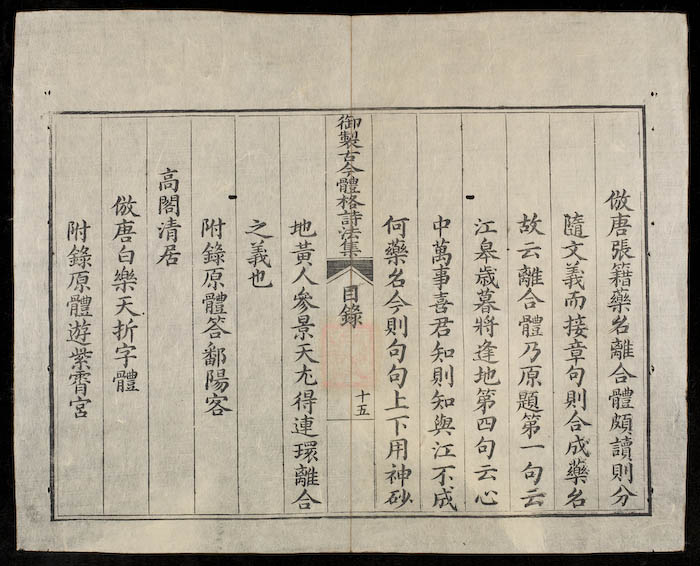 倣唐張籍藥名離合體頗讀則分
隨文義而接章句則合成藥名
故云離合體乃原題第一句云
江皋歲暮將逢地第四句云心
中萬事喜君知則知與江不成
何藥名今則句句上下用神砂
御製古今體格詩法集
目錄
十五
地黃人參景天尢得連環離合
之義也
附錄原體答鄱陽客
高閣清居
倣唐白樂天折字體
附錄原體遊紫霄宮